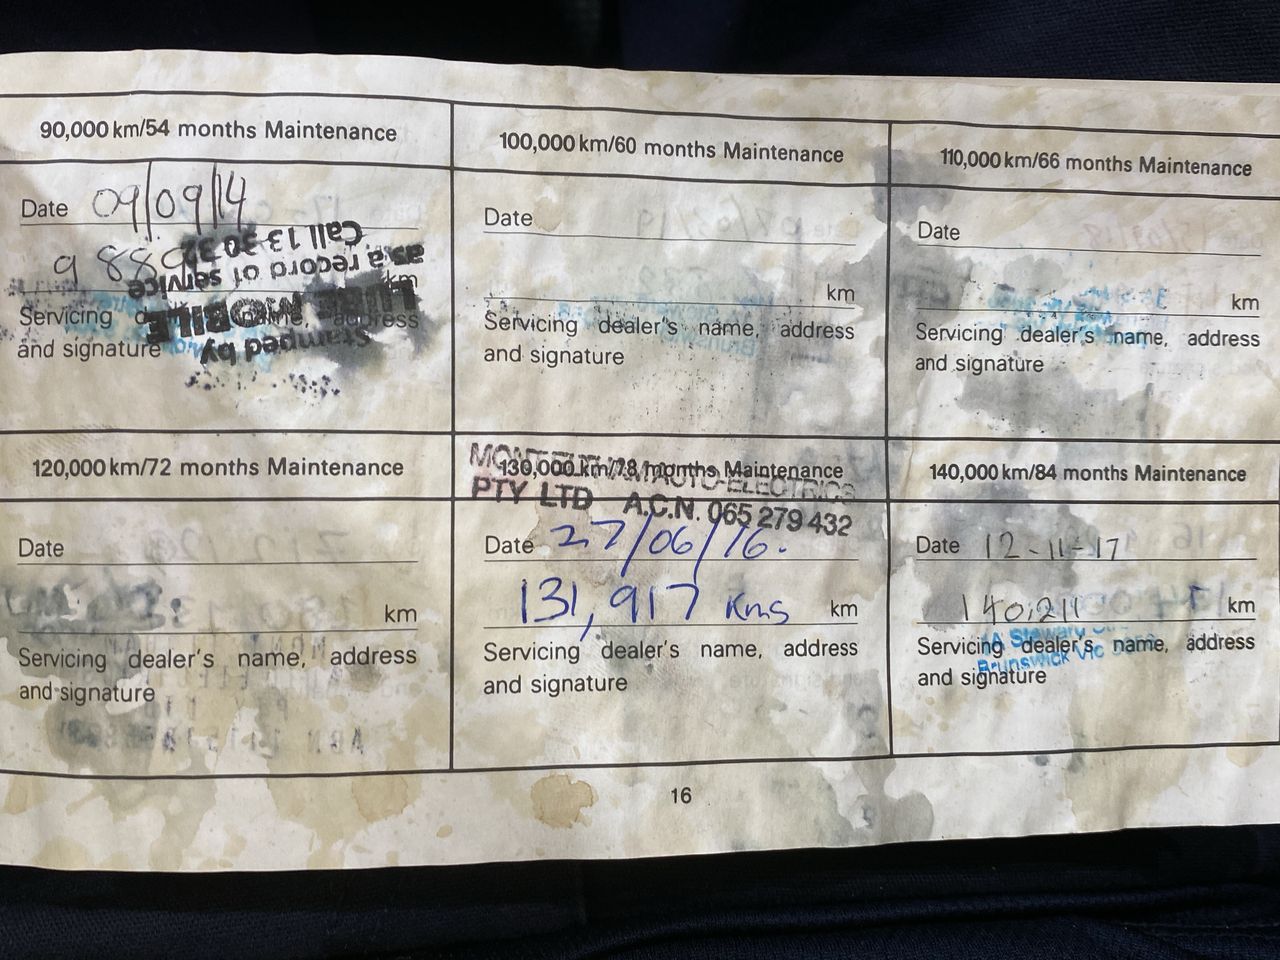 90,000 km/54 months Maintenance
Date 09/09/14
km
Servicing dealer's name, address
and signature
Stamped by
LUBE MOBILE
as a record of service
Call 13 30 32
100,000 km/60 months Maintenance
Date
km
Servicing dealer's name, address
and signature
110,000 km/66 months Maintenance
Date
km
Servicing dealer's name, address
and signature
120,000 km/72 months Maintenance
Date
km
Servicing dealer's name, address
and signature
130,000 km/78 months Maintenance
AUTO-ELECTRICS
PTY LTD A.C.N. 065 279 432
Date 27/06/16.
131,917 Kms km
Servicing dealer's name, address
and signature
140,000 km/84 months Maintenance
Date 12-11-17
140,211 km
Servicing dealer's name, address
and signature
Brunswick Vic
16